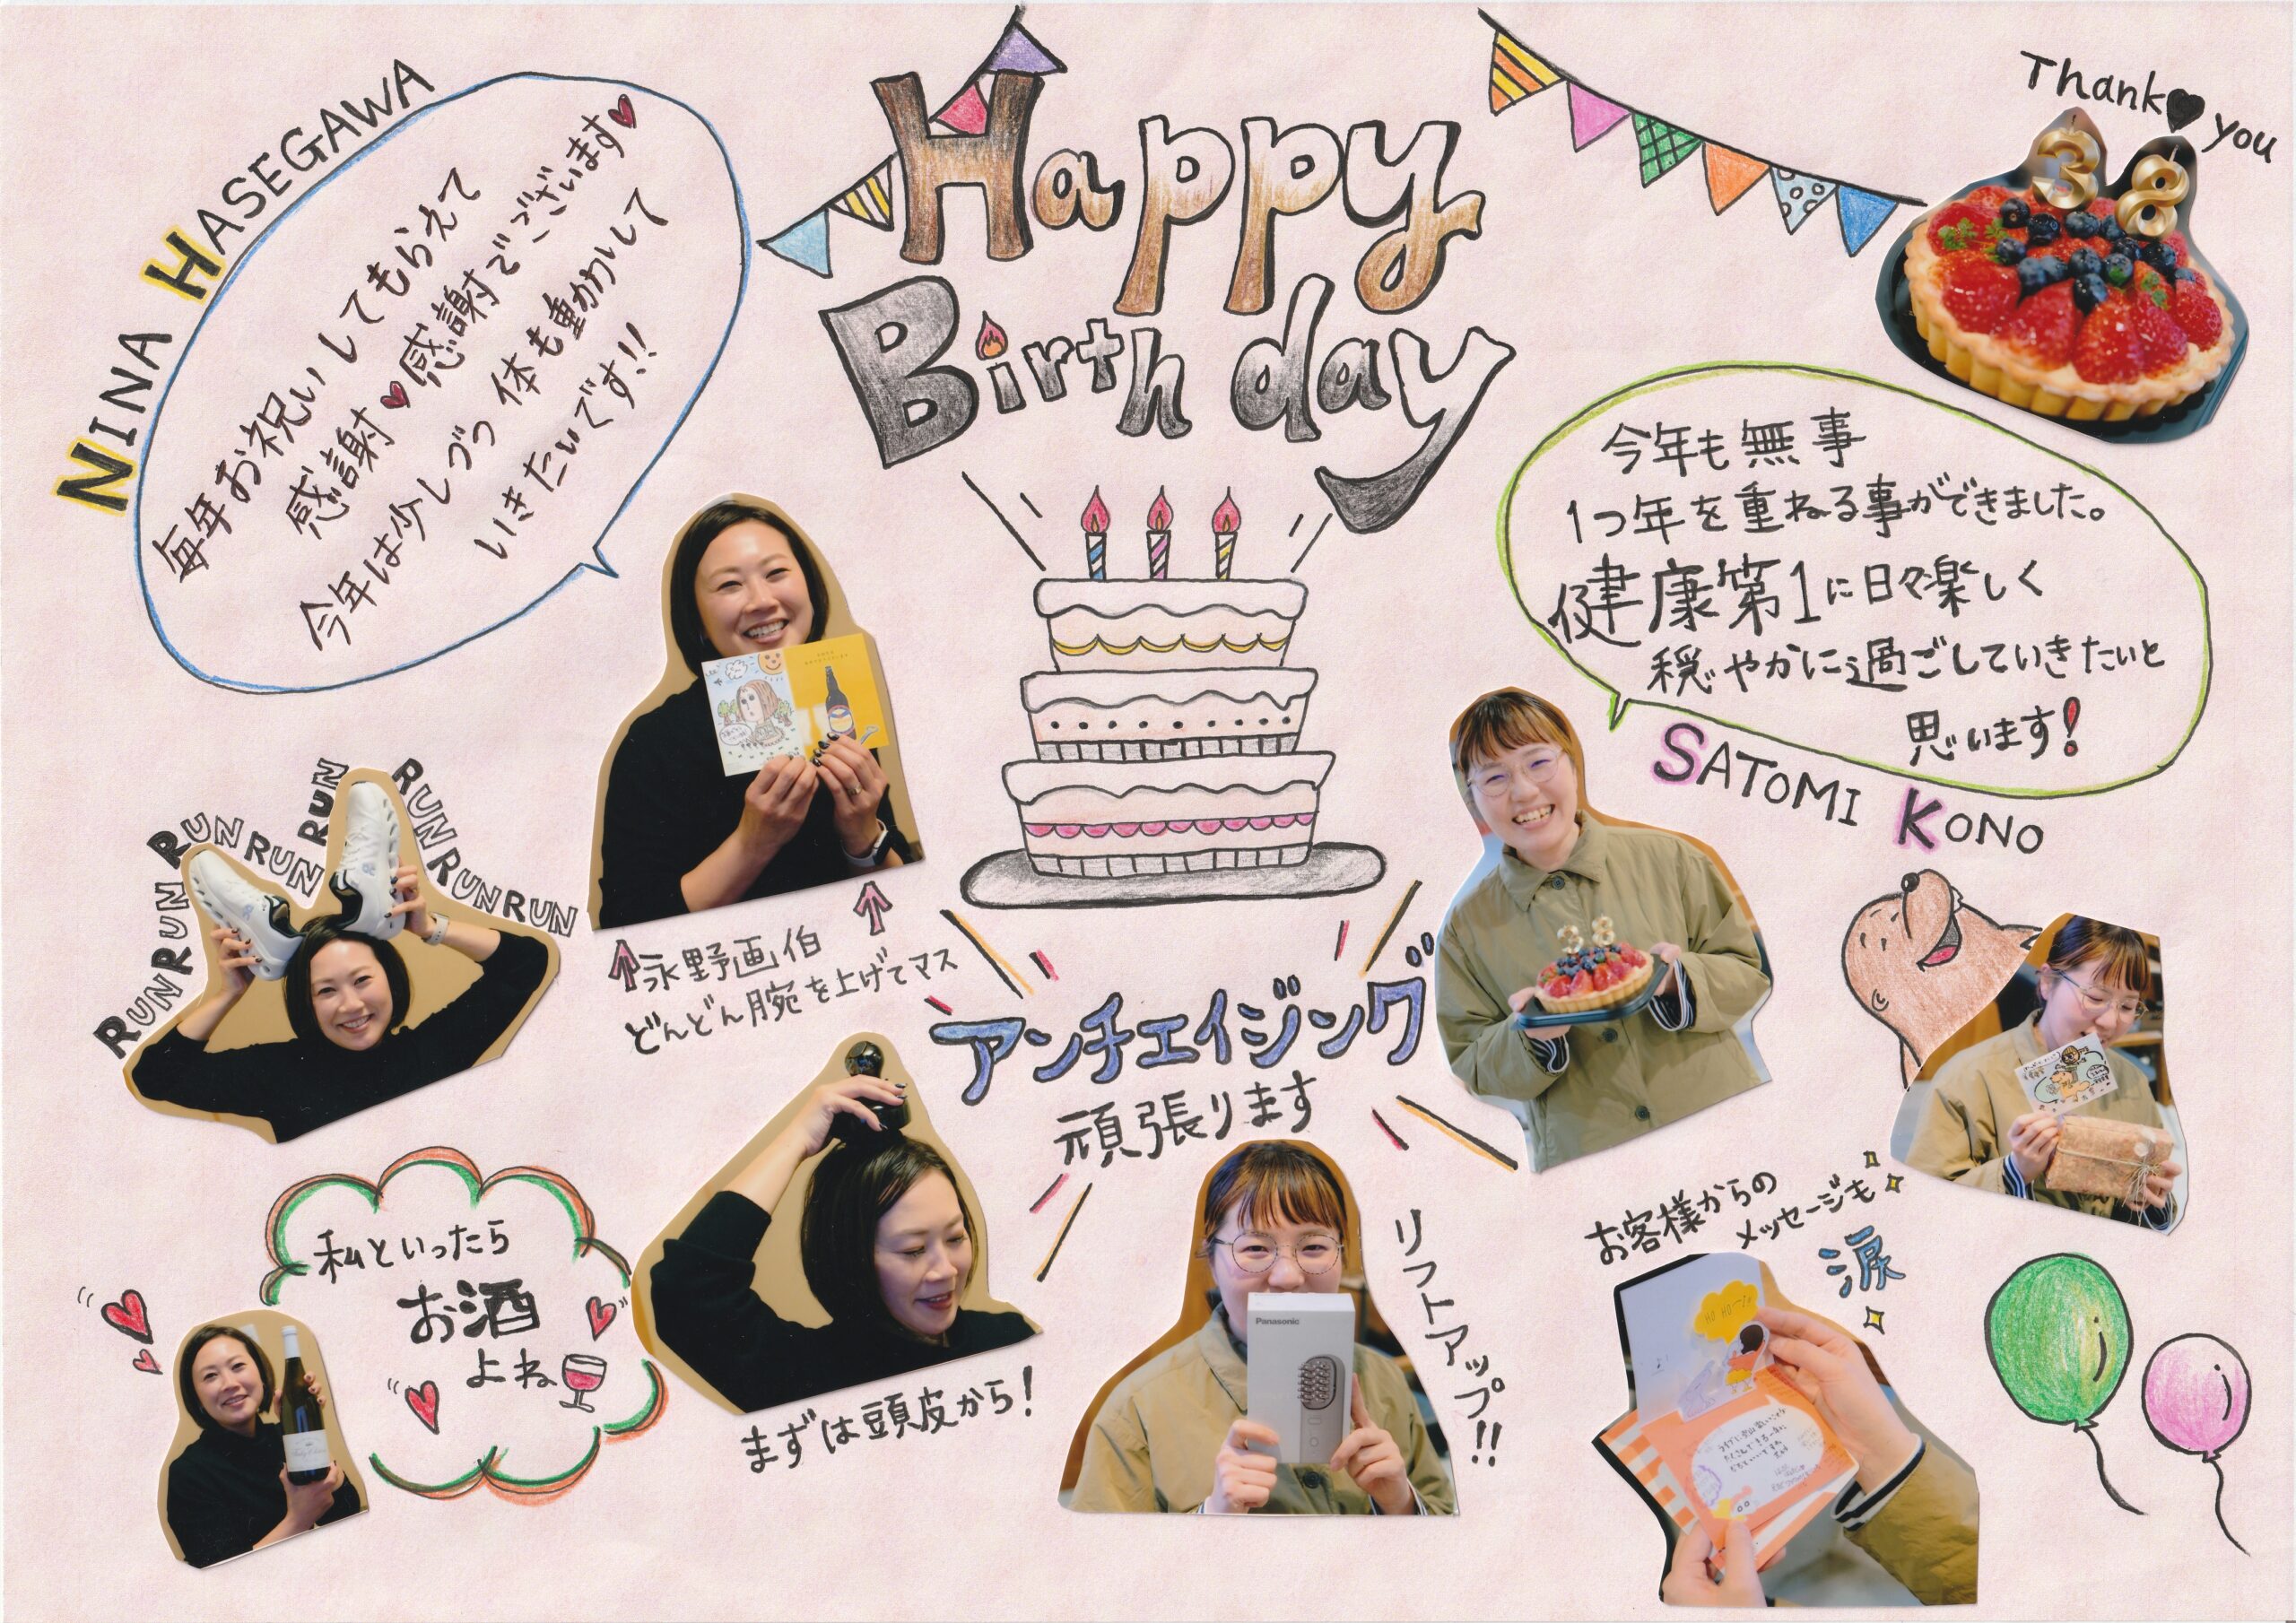 Happy
Birthday
NINA HASEGAWA
毎年お祝いしてもらえて
感謝♥感謝でございます♥
今年は少しづつ 体も動かして
いきたいです!!
Thank♥you
38
今年も無事
1つ年を重ねる事ができました。
健康第1に日々楽しく
穏やかに過ごしていきたいと
思います!
SATOMI KONO
RUN RUN RUN RUN RUN RUN RUN RUN
↑永野画伯↑
どんどん腕を上げてマス
アンチエイジング
頑張ります
38
私といったら
お酒
よね
まずは頭皮から!
Panasonic
リフトアップ!!
お客様からの
メッセージも
涙